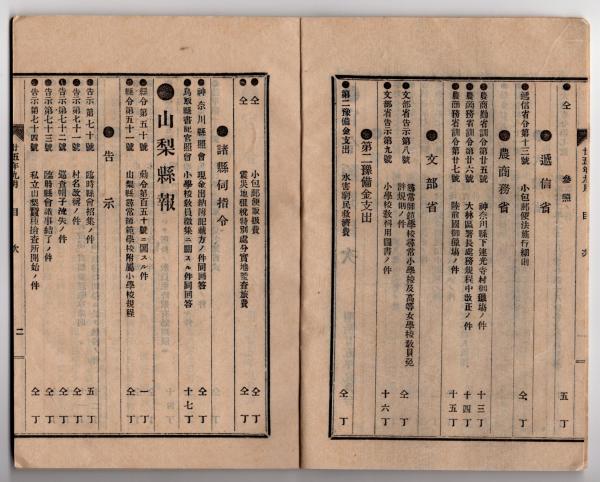 廿五年九月 目次
●仝 參照 五丁
●遞信省
●遞信省令第十三號 小包郵便法施行細則 仝丁
●農商務省
●農商務省訓令第廿五號 神奈川縣下連光寺村御獵塲ノ件 十三丁
●農商務省訓令第廿六號 大林區署長處務規程中改正ノ件 十四丁
●農商務省訓令第廿七號 陸前國御獵塲ノ件 十五丁
●文部省
●文部省告示第八號 尋常師範學校尋常小學校及高等女學校敎員免許規則ノ件 仝丁
●文部省告示第九號 小學校敎科用圖書ノ件 十六丁
●第二豫備金支出
●第二豫備金支出 水害窮民救濟費 仝丁
●仝 小包郵便取扱費 仝丁
●仝 震災地租稅特別處分實地監査旅費 仝丁
●諸縣伺指令
●神奈川縣照會 現金出納簿記載方ノ件同回答 仝丁
●鳥取縣書記官照會 小學校敎員徵集ニ關スル件同回答 十七丁
●山梨縣報
●縣令第五十號 勅令第百五十號ニ關スル件 一丁
●縣令第五十一號 山梨縣尋常師範學校附屬小學校規程 仝丁
●告示
●告示第七十號 臨時縣會招集ノ件 五丁
●告示第七十一號 村名改稱ノ件 仝丁
●告示第七十二號 巡査帽子流失ノ件 仝丁
●告示第七十三號 臨時縣會議事結了ノ件 仝丁
●告示第七十四號 私立山梨蠶種檢查所開始ノ件 仝丁
廿五年九月 目次 二